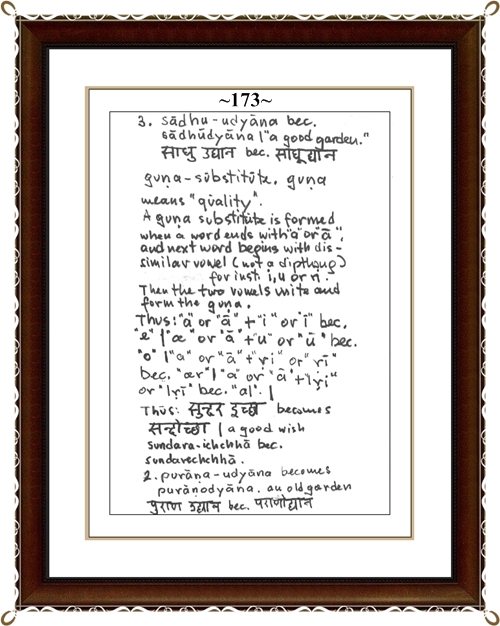 ~173~
3. sādhu-udyāna bec.
sādhūdyāna | "a good garden."
साधु उद्यान bec. साधूद्यान
guṇa-substitūte. guṇa
means "quality".
A guṇa substitute is formed
when a word ends with "a" or "ā",
and next word begins with dis-
similar vowel (not a dipthong)
for inst. i, u or ṛi.
Then the two vowels unite and
form the guṇa.
Thus: "a" or "ā" + "i" or "ī" bec.
"e" | "a" or "ā" + "u" or "ū" bec.
"o" | "a" or "ā" + "ṛi" or "ṛī"
bec. "ær" | "a" or "ā" + "ḷṛi"
or "lṛī" bec. "al". |
Thus: सुन्दर इच्छा becomes
सन्दरेच्छा | a good wish
sundara-ichchhā bec.
sundarechchhā.
2. purāṇa-udyāna becomes
purāṇodyāna. an old garden
पुराण उद्यान bec. पराणोद्यान